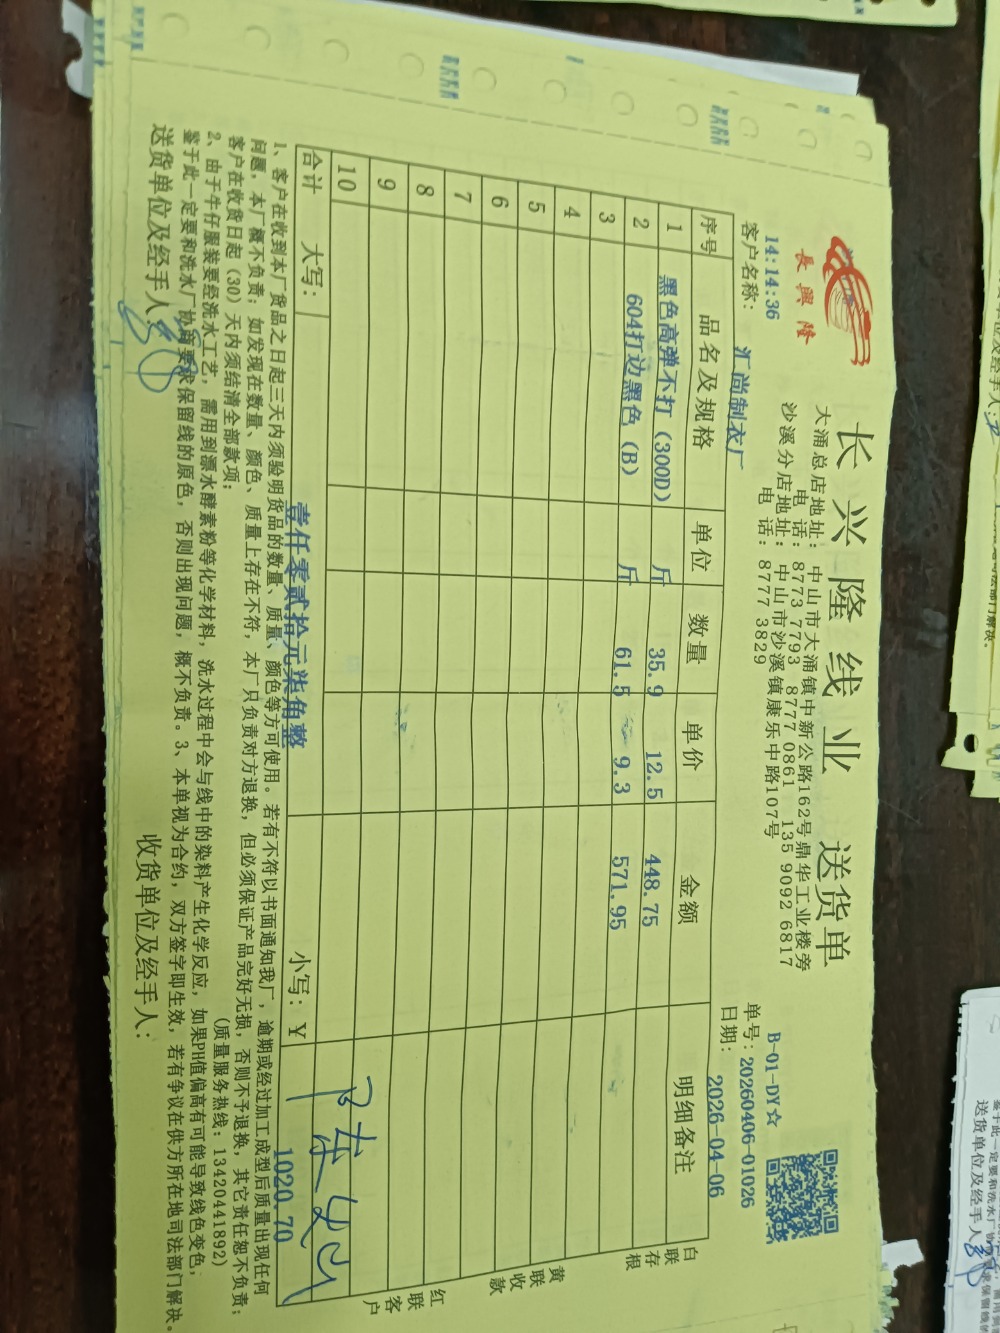 長興隆
长兴隆线业 送货单
大涌总店地址: 中山市大涌镇中新公路162号鼎华工业楼旁
电 话: 8773 7793 8777 0861 135 9092 6817
沙溪分店地址: 中山市沙溪镇康乐中路107号
电 话: 8777 3829
B-01-DY☆
14:14:36
单号: 20260406-01026
客户名称: 汇尚制衣厂
日期: 2026-04-06
序号 品名及规格 单位 数量 单价 金额 明细备注
1 黑色高弹不打 (300D) 斤 35.9 12.5 448.75
2 604打边黑色 (B) 斤 61.5 9.3 571.95
3
4
5
6
7
8
9
10
合计 大写: 壹仟零贰拾元柒角整 小写: Y 1020.70
白联存根
黄联收款
红联客户
1、客户在收到本厂货品之日起三天内须验明货品的数量、质量、颜色等方可使用。若有不符以书面通知我厂,逾期或经过加工成型后质量出现任何
问题,本厂概不负责;如发现在数量、颜色、质量上存在不符,本厂只负责对方退换,但必须保证产品完好无损,否则不予退换,其它责任恕不负责;
客户在收货日起 (30) 天内须结清全部款项; (质量服务热线: 13420441892)
2、由于牛仔服装要经洗水工艺,需用到漂水酵素粉等化学材料,洗水过程中会与线中的染料产生化学反应,如果PH值偏高有可能导致线色变色;
鉴于此一定要和洗水厂协商要求保留线的原色,否则出现问题,概不负责。3、本单视为合约,双方签字即生效,若有争议在供方所在地司法部门解决。
送货单位及经手人: 收货单位及经手人: